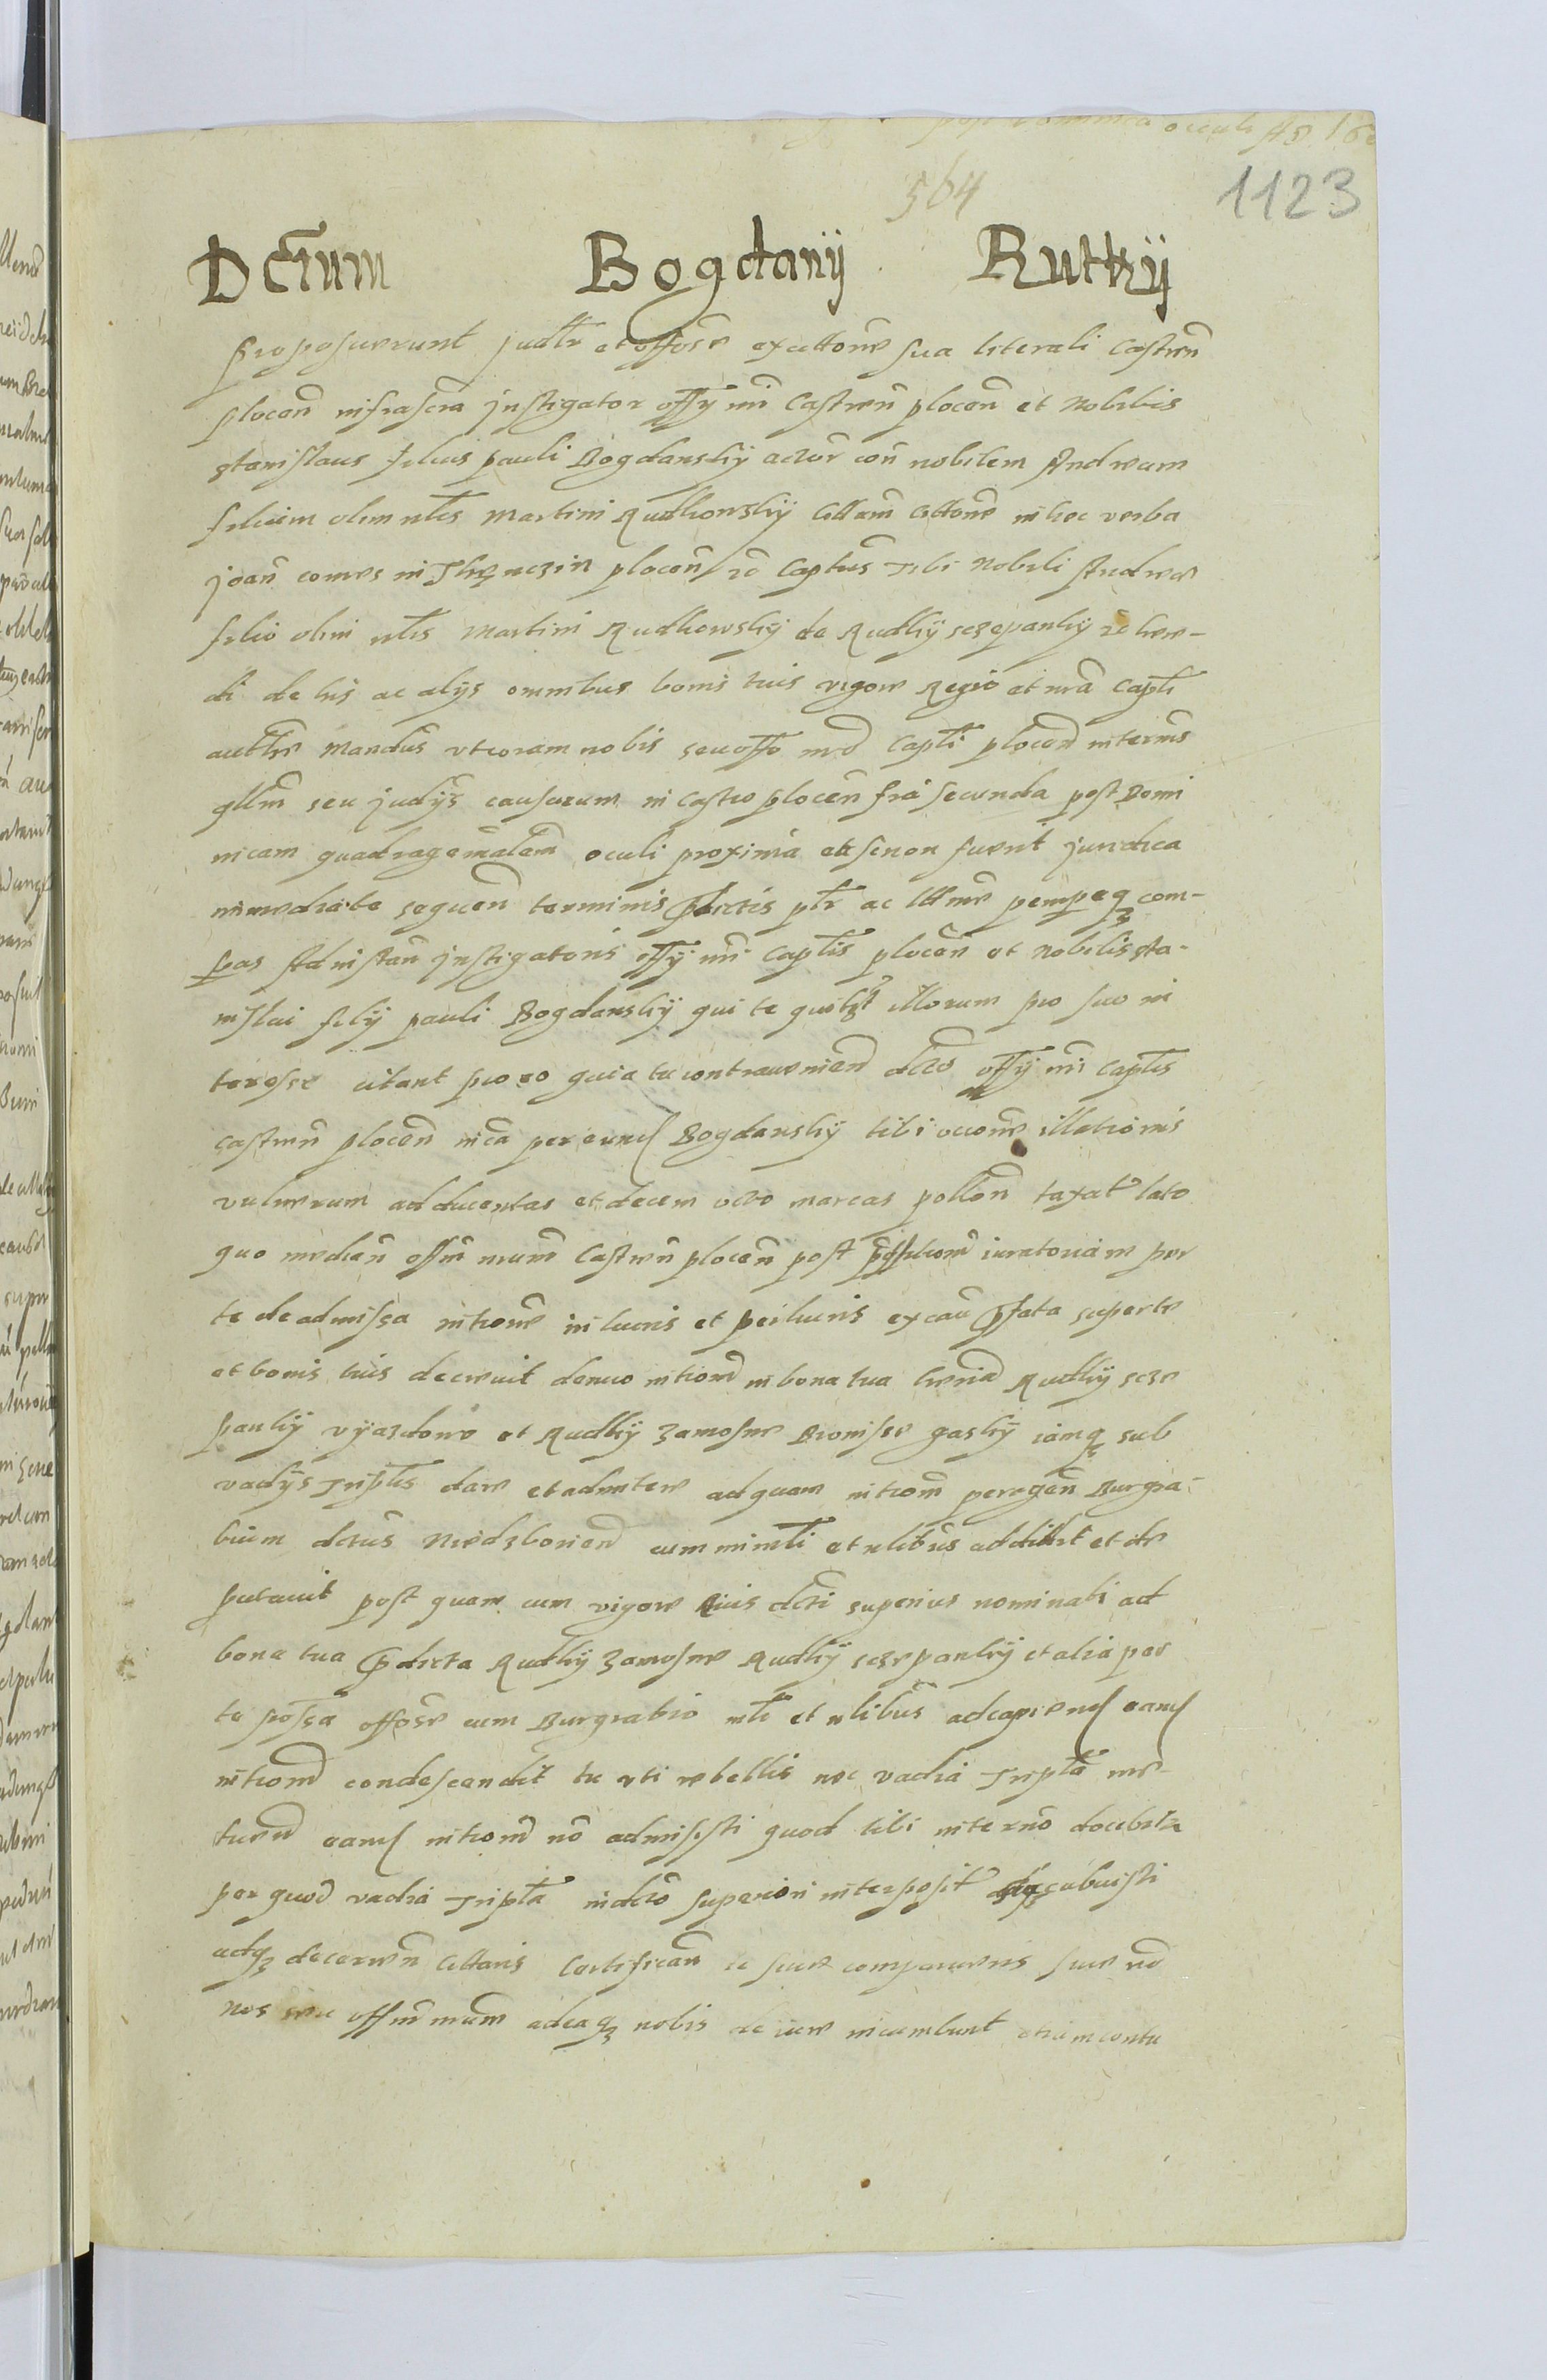 post Dominica oculi Ao 16
564
1123
Dcrum Bogdanij Rutkij
Proposuerunt judlr et offose ex cittone sua literali Castren
plocen infrascra jnstigator offij nri Castren plocen et Nobilis
stanislaus filius pauli Bogdanskij actor con nobilem Andream
filium olim nlis Martini Rudkowskij Cittam Cittone in hec verba
joan comes in Thęnczin plocen ze Captus Tibi Nobili Andreae
filio olim nlis Martini Rudkowskij de Rudkij sczepankij ze here-
di de his ac alijs omnibus bonis tuis vigore Regio et nra Capli
autthe Mandus vt coram nobis seu offo nro Capli plocen in termis
gllm seu judijs causarum in castro plocen fria secunda post Domi
nicam quadragesimalem oculi proxima et si non fuerit juridica
immediate sequen terminis pdictis plr ac lttime perempeqz com-
pas Ad instan jnstigatoris offij nri Captis plocen et nobilis sta-
nislai filij pauli Bogdanskij qui te quilbt illorum pro suo in
teresse citant pro eo quia tu contravenien dcto offij nri Captis
castren plocen in ca per eund Bogdanskij tibi rone illationis
vulnerum ad ducentas et decem octo marcas pollon taxat lato
quo median offm nrum Castren plocen post iuratoriam per
te de admissa intione in lucris et perlucris ex cau pfata super te
et bonis tuis decrevit denuo intiom in bona tua heredi Rudkij scze
pankij vijazdowo et Rudkij zamosne Bronisze gaskij iamqz sub
vadijs Triplis dare et admitere ad quam intiom peragen Burgra-
bium dctus Niedzborien cum minrli et nlibus addidit et de
putavit post quam cum vigore eius dcti superius nominati ad
bona tua pdicta Rudkij zamosne Rudkij sczepankij et alia per
te possa offose cum Burgrabio mli et nlibus ad capiend eand
intiom condescendit tu vti rebellis nec vadia Tripla me-
tuen eand intiom no admisisti quod tibi in termo docebitr
per quod vadia Tripla in dcto superiori interposit succubuisti
adqz decernen Cittaris Certifican te sive comparueris sive no
nos seu offm nrum ad eaqz nobis de iure incumbunt etiam contu